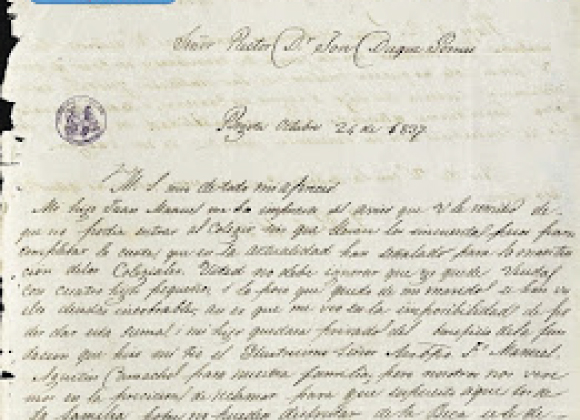 Señor Rector Dr José Duque Gómez
Bogotá Octubre 24 de 1837
M. S. mio de todo mi aprecio
Mi hijo Juan Manuel me ha impuesto del aviso que V le remitió de
que no podia entrar al Colegio sin que lleven los cincuenta pesos para
completar la cuota que en la actualidad han señalado para la manten
cion de los Colegiales. Usted no debe ignorar que yo quedé Viuda
con cuatro hijos pequeños, i lo poco que quedó de mi marido se han vu
elto deudas incobrables, asi es que me veo en la imposibilidad de po
der dar esta suma i mi hijo quedara privado del beneficio de la fun
dacion que hiso mi tio el Illustrisimo Señor Arzobpo Dr Manuel
Agustin Camacho para nuestra familia, pero nosotros nos vere
mos en la precicion de reclamar para que
la familia pobre no puedan disfrutar de la Beca